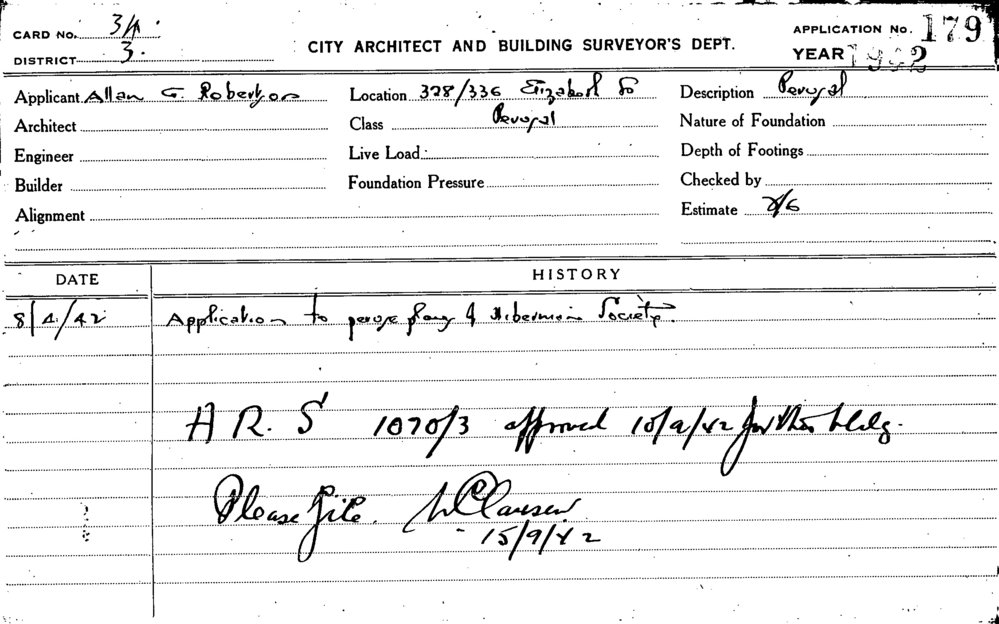 CARD No. 34.
APPLICATION No. 179
CITY ARCHITECT AND BUILDING SURVEYOR'S DEPT.
DISTRICT 3.
YEAR 1942
Applicant Allan G. Robertson Location 328/336 Elizabeth St Description Perusal
Architect Class Perusal Nature of Foundation
Engineer Live Load Depth of Footings
Builder Foundation Pressure Checked by
Alignment Estimate 2/6
DATE HISTORY
8/4/42 Application to peruse plans of Hibernian Society.
A R. S 1070/3 approved 10/9/42 for this bldg.
Please file.
15/9/42